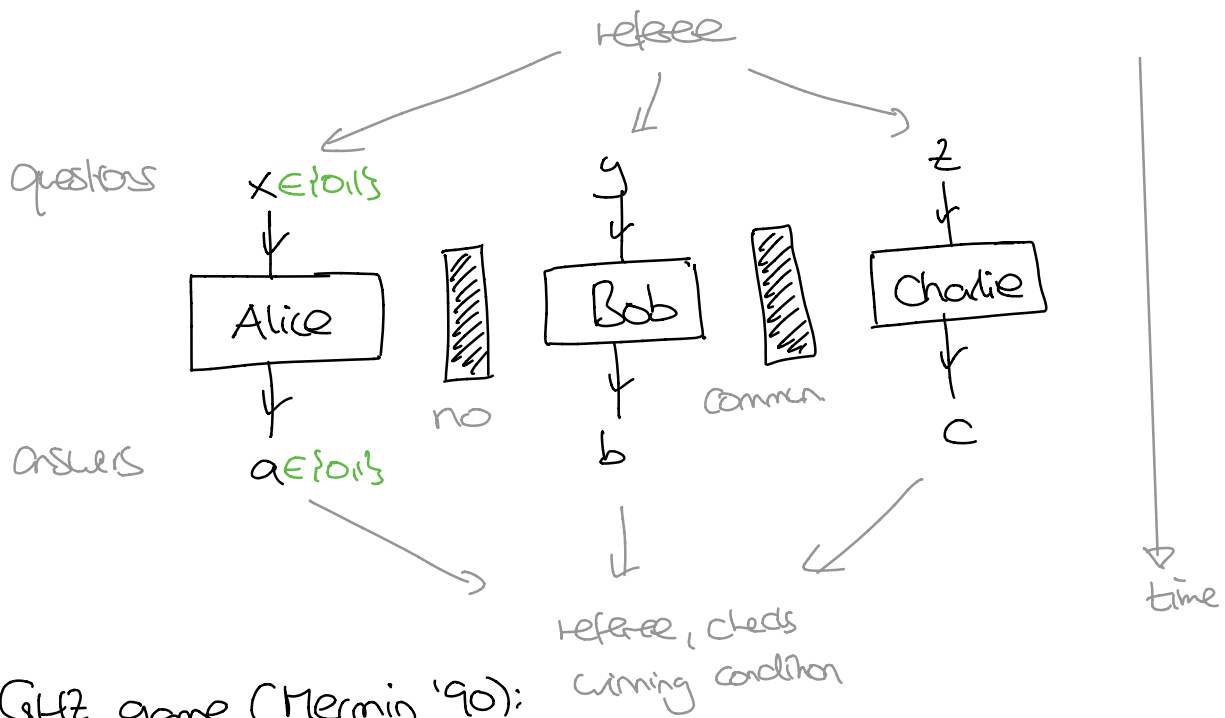 referee
questions x∈{0,1} y z
Alice Bob Charlie
no commun.
answers a∈{0,1} b c
time
referee, checks
winning condition
GHZ game (Mermin '90):